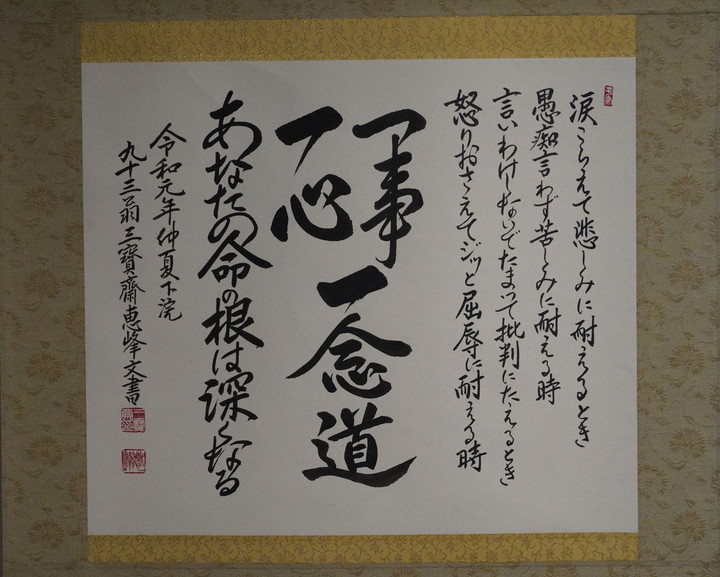 涙こらえて悲しみに耐えるとき
愚痴言わず苦しみに耐える時
言いわけしないでたまって批判にたえるとき
怒りおさえてジッと屈辱に耐える時
一事
一心
一念道
あなたの命の根は深くなる
令和元年仲夏下浣
九十三翁三寶齋恵峰文書